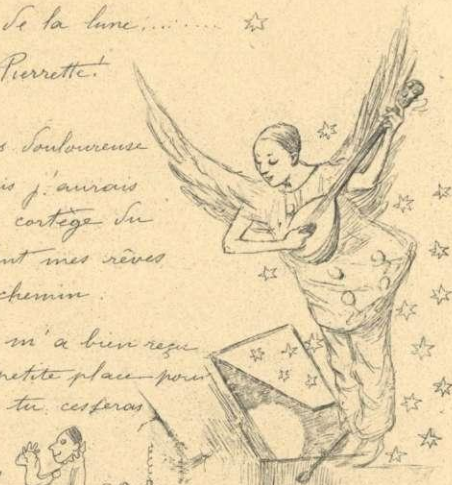 de la lune.........
Pierrette!
s douloureuse
is j'aurais
cortège du
nt mes rêves
chemin.
m'a bien reçu
petite place pour
tu cesseras